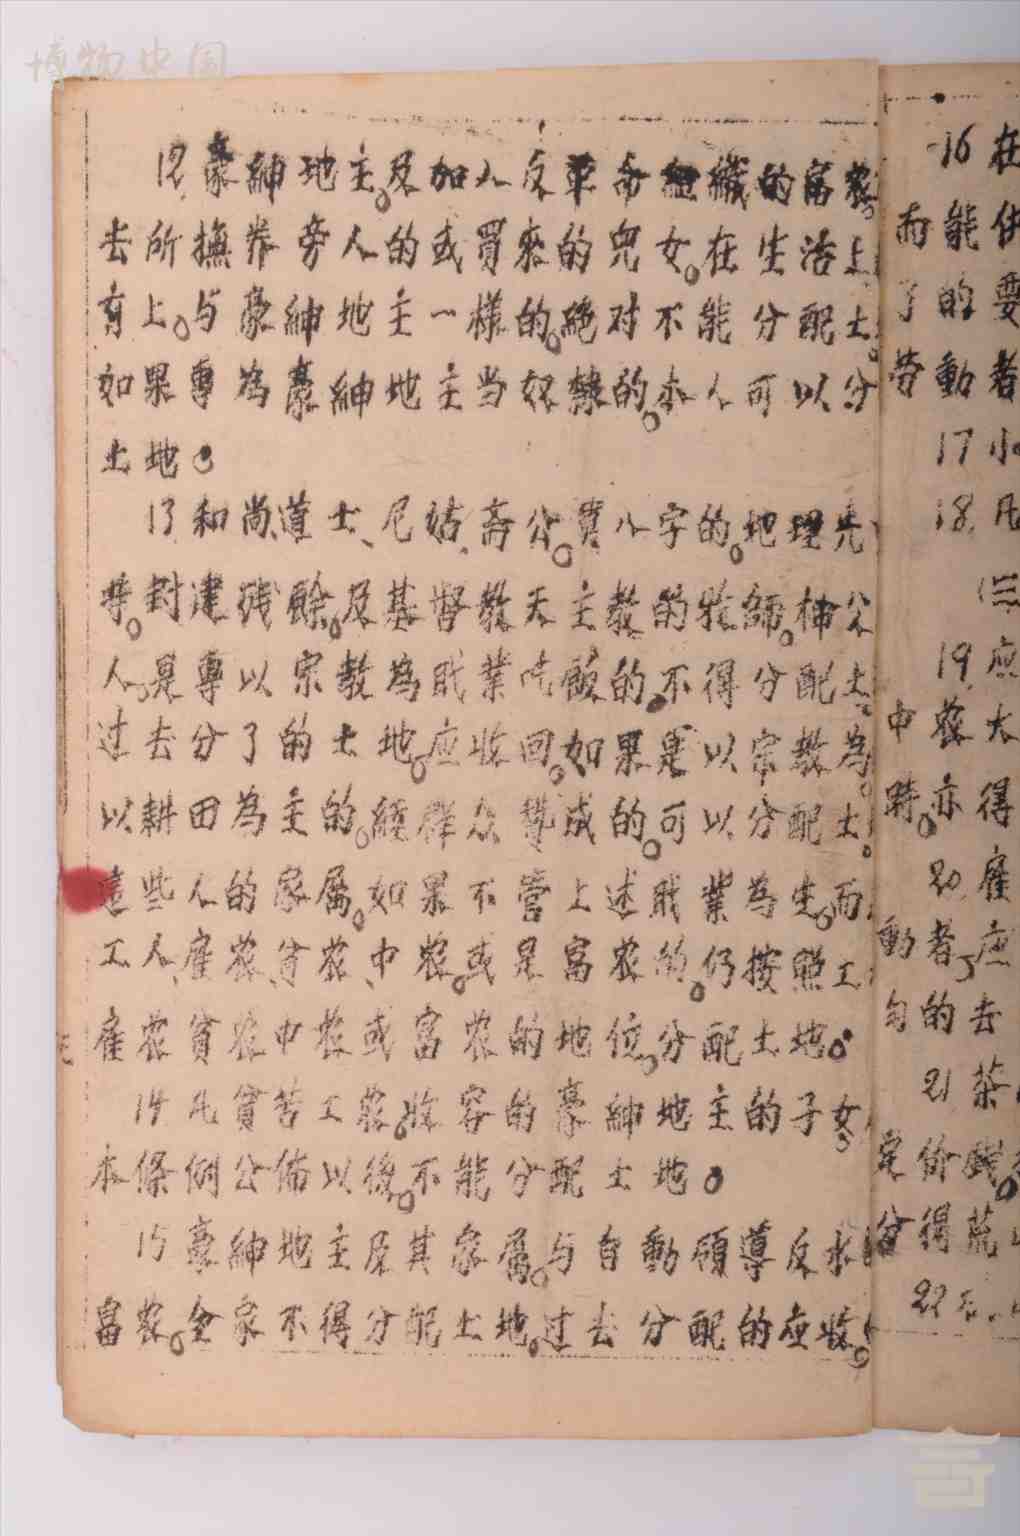 博物中国
12.豪紳地主。及加入反革命組織的富农。
去所撫养旁人的或買來的兒女。在生活上
育上。与豪紳地主一樣的。絕对不能分配土
如果專為豪紳地主当奴隸的。本人可以分
土地。
13和尚、道士、尼姑、斋公。算八字的。地理先
等。封建殘餘。及基督教天主教的牧師。神公
人。是專以宗教為职業吃飯的。不得分配土
过去分了的土地。应收回。如果是以宗教為
以耕田為主的。經群众贊成的。可以分配土
這些人的家屬。如果不营上述职業為生。而
工人、雇农、貧农、中农。或是富农的。仍按照工
雇农貧农中农或富农的地位。分配土地。
14凡貧苦工农。收容的豪紳地主的子女。
本條例公佈以後。不能分配土地。
15豪紳地主及其家屬。与自動領導反水
富农。全家不得分配土地。过去分配的应收。
16在
而能使
了的要
劳動者
17小
18.凡
(三
19应
中农大
時。亦得
20.雇
動者、应
匀的去
21茶
定价錢。
分得荒
22